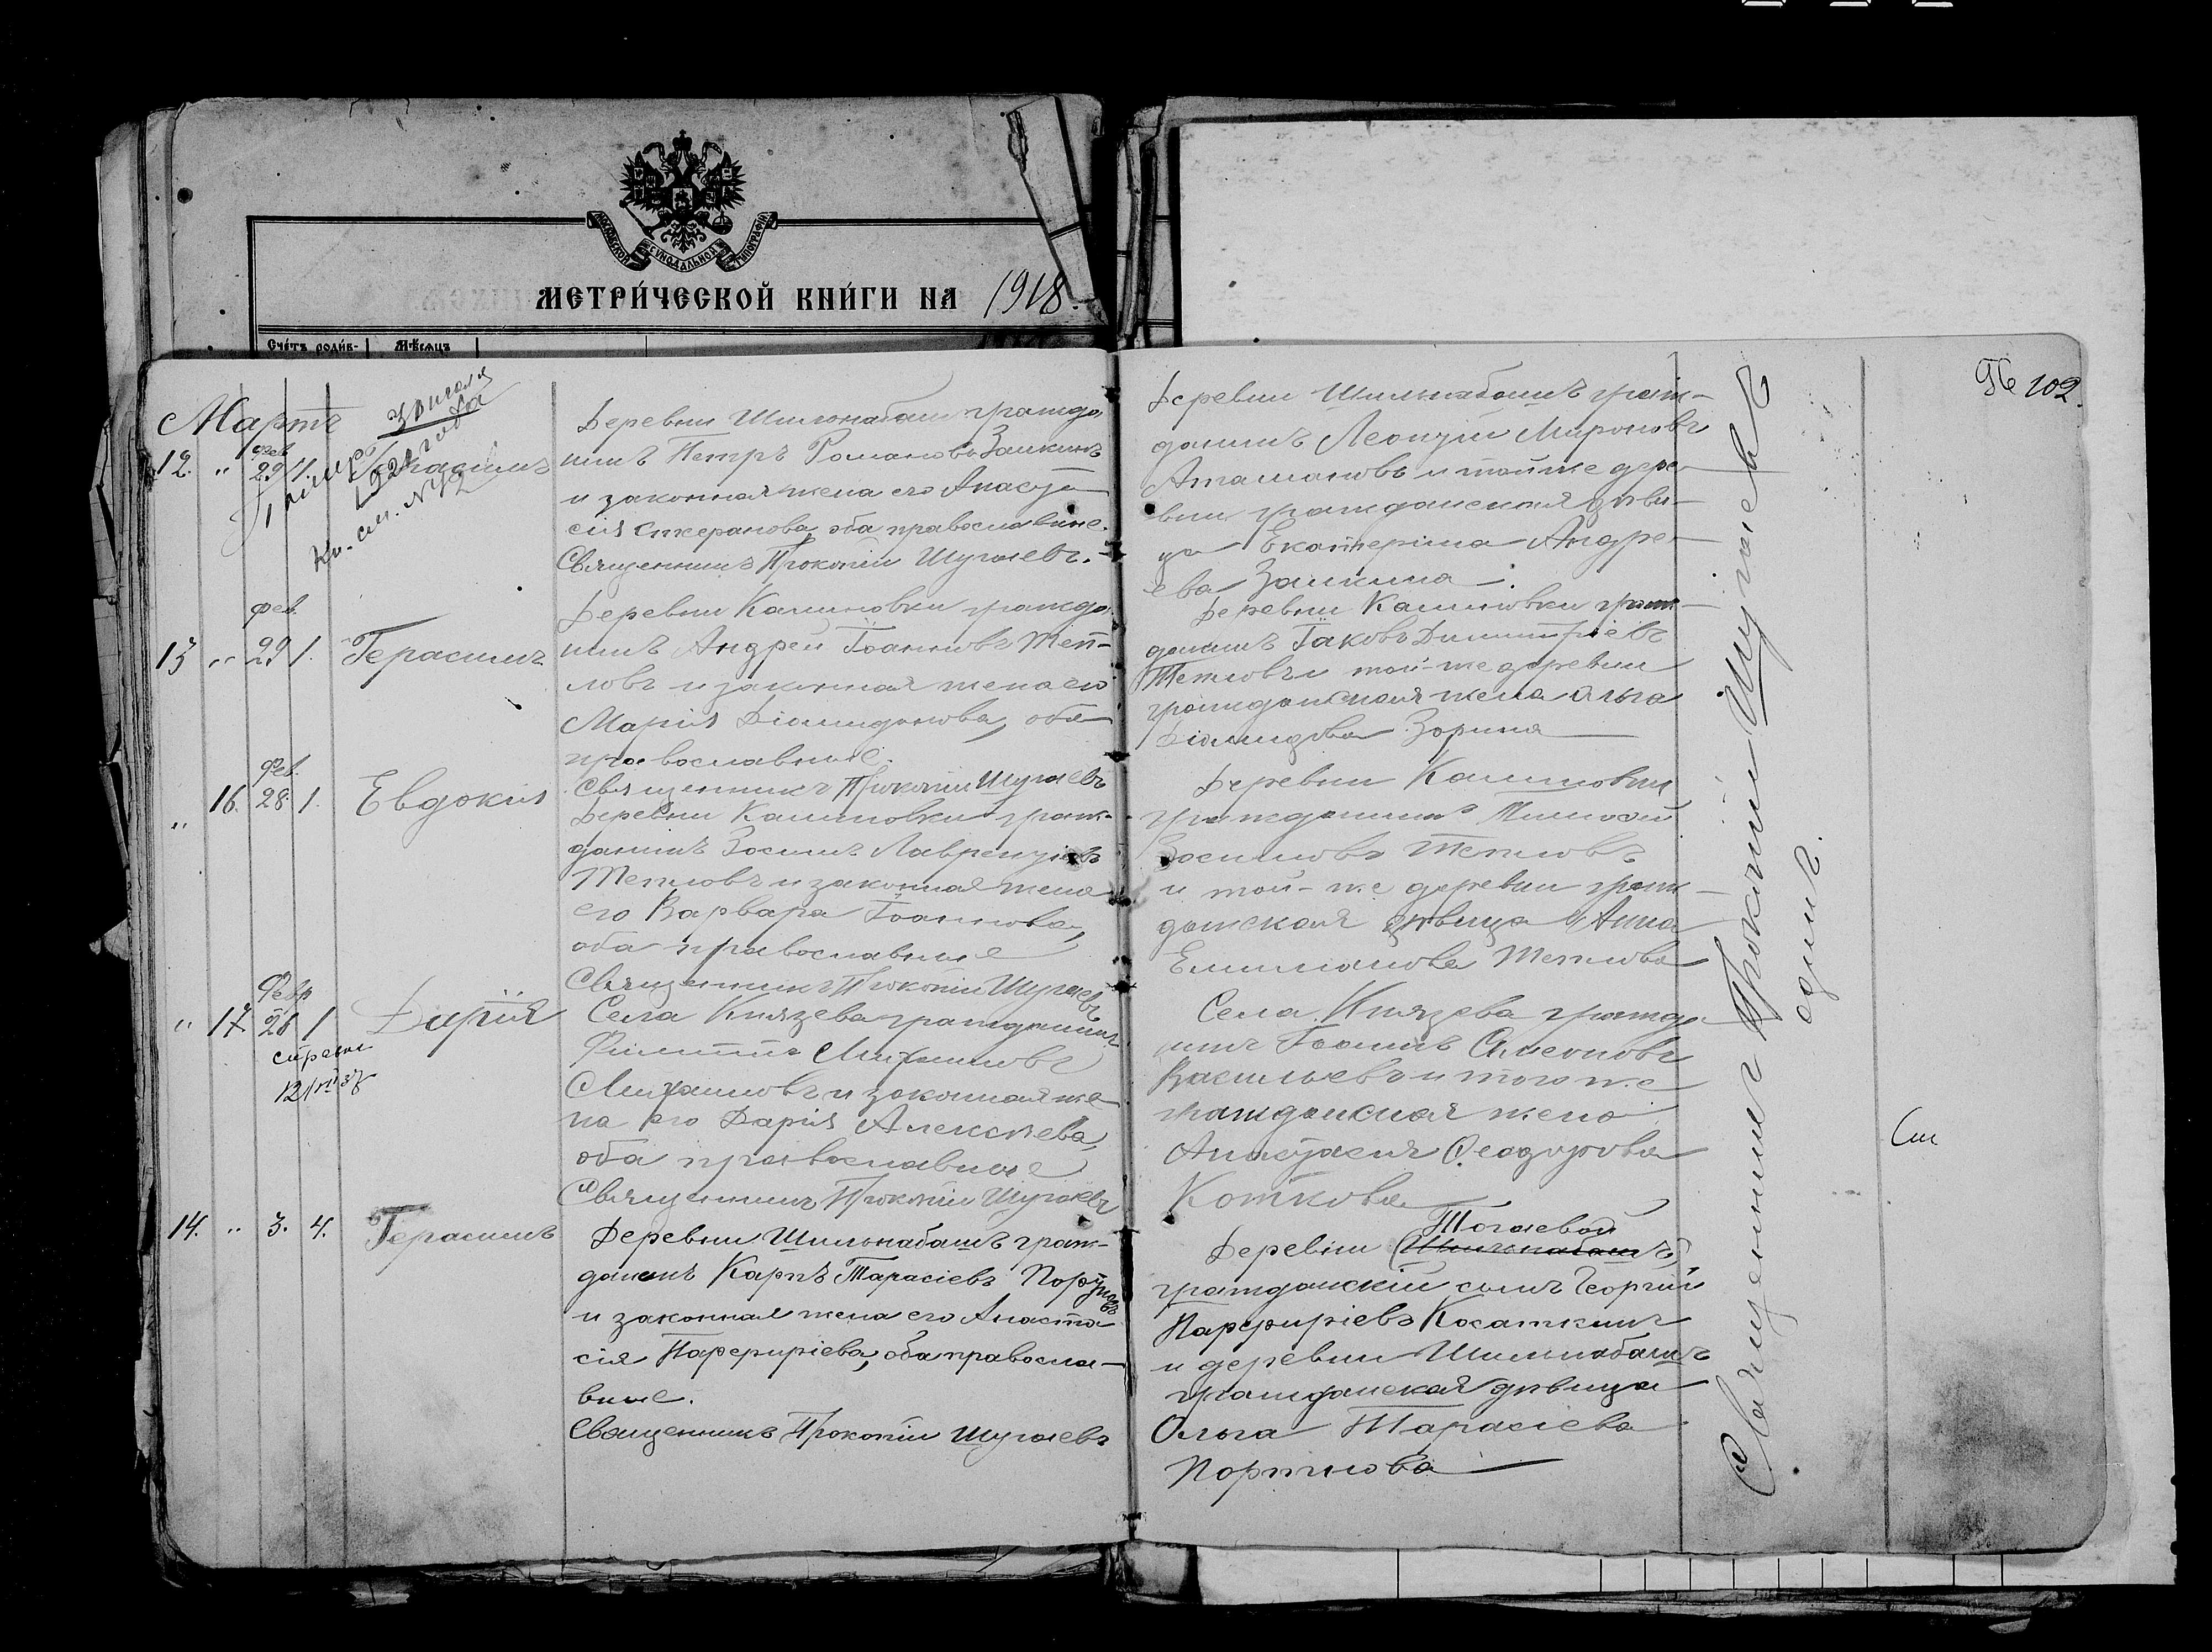 МОСКОВСКОЙ СѴНОДАЛЬНОЙ ТИПОГРАФІИ
МЕТРИ́ЧЕСКОЙ КНИ́ГИ НА 1918.
Сче́тъ роди́в-
Мѣ́сяцъ
Мартъ
12. " фев 29 1.
1921 года
см. №
Деревни Шильнабаш гражда
нинъ Петръ Романовъ Заикинъ
и законная жена его Анаста
сія оба православные.
Священникъ Прокопій Шугаевъ.
13 " фев. 29 1. Герасимъ
Деревни Калиновки гражда
нинъ Андрей Іоанновъ Теп-
ловъ и законная жена его
Марія Діамидова, оба
православные.
Священникъ Прокопій Шугаевъ
" 16. фев. 28. 1. Евдокія
Деревни Калиновки граж-
данинъ Зосимъ Лаврентіевъ
Тепловъ и законная жена
его Варвара Іоаннова,
оба православные
Священникъ Прокопій Шугаевъ
" 17 Февр 26 1 Дарія
Села Князева гражданинъ
Филиппъ Михаиловъ
Михаиловъ и законная же
на его Дарія Алексѣева,
оба православные
Священникъ Прокопій Шугаевъ
14. " 3. 4. Герасимъ
Деревни Шильнабашъ граж-
данинъ Карпъ Тарасіевъ
и законная жена его Анаста
сія Парфиріева, оба правосла-
вные.
Священникъ Прокопій Шугаевъ
102.
Деревни Шильнабашъ граж-
данинъ Леонтій Мироновъ
Атамановъ и той же дере
вни гражданская дѣви-
ца Екатерина Андре
ева Заикина
Деревни Калиновки граж-
данинъ Іаковъ Димитріевъ
Тепловъ и той-же деревни
гражданская жена Ольга
Діамидова Зорина
Деревни Калиновки
гражданинъ
Зосимовъ Тепловъ
и той-же деревни граж-
данская дѣвица Анна
Емилианова Теплова
Села Князева гражда
нинъ Іоаннъ Симеоновъ
Васильевъ и того же
гражданская жена
Анастасія Феодорова
Коткова
Тогаевой
Деревни (Шильнабашъ)
гражданскій сынъ Георгій
Парфиріевъ Косаткинъ
и деревни Шильнабашъ
гражданская дѣвица
Ольга Тарасіева
Портнова
Священникъ Прокопій Шугаевъ